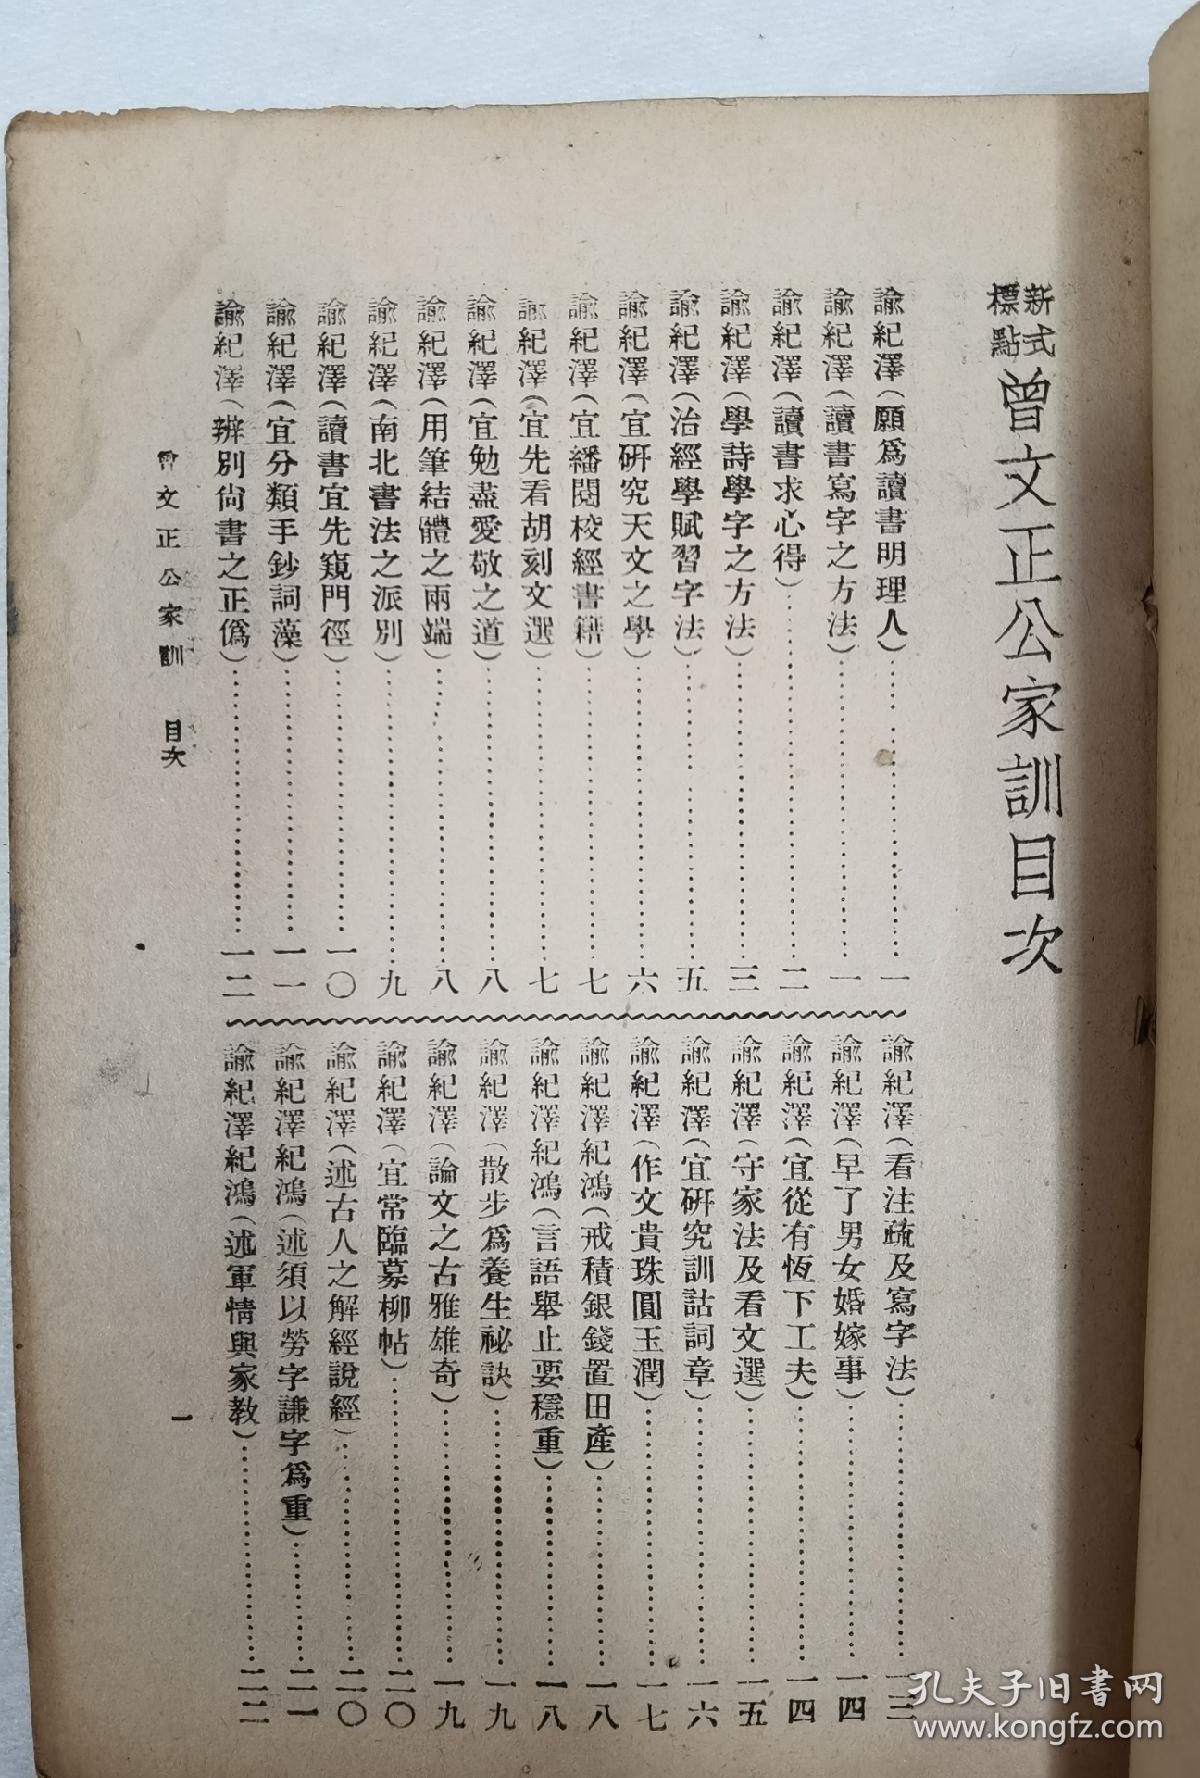 新式標點
曾文正公家訓目次
諭紀澤（願爲讀書明理人）……一
諭紀澤（讀書寫字之方法）……一
諭紀澤（讀書求心得）……二
諭紀澤（學詩學字之方法）……三
諭紀澤（治經學賦習字法）……五
諭紀澤（宜硏究天文之學）……六
諭紀澤（宜繙閱校經書籍）……七
諭紀澤（宜先看胡刻文選）……七
諭紀澤（宜勉盡愛敬之道）……八
諭紀澤（用筆結體之兩端）……八
諭紀澤（南北書法之派別）……九
諭紀澤（讀書宜先窺門徑）……一〇
諭紀澤（宜分類手鈔詞藻）……一一
諭紀澤（辨別尙書之正僞）……一二
諭紀澤（看注疏及寫字法）……一三
諭紀澤（早了男女婚嫁事）……一四
諭紀澤（宜從有恆下工夫）……一四
諭紀澤（守家法及看文選）……一五
諭紀澤（宜硏究訓詁詞章）……一六
諭紀澤（作文貴珠圓玉潤）……一七
諭紀澤紀鴻（戒積銀錢置田產）……一八
諭紀澤紀鴻（言語舉止要穩重）……一八
諭紀澤（散步爲養生祕訣）……一九
諭紀澤（論文之古雅雄奇）……一九
諭紀澤（宜常臨摹柳帖）……二〇
諭紀澤（述古人之解經說經）……二〇
諭紀澤紀鴻（述須以勞字謙字爲重）……二一
諭紀澤紀鴻（述軍情與家教）……二二
曾文正公家訓 目次
一
孔夫子旧书网
www.kongfz.com